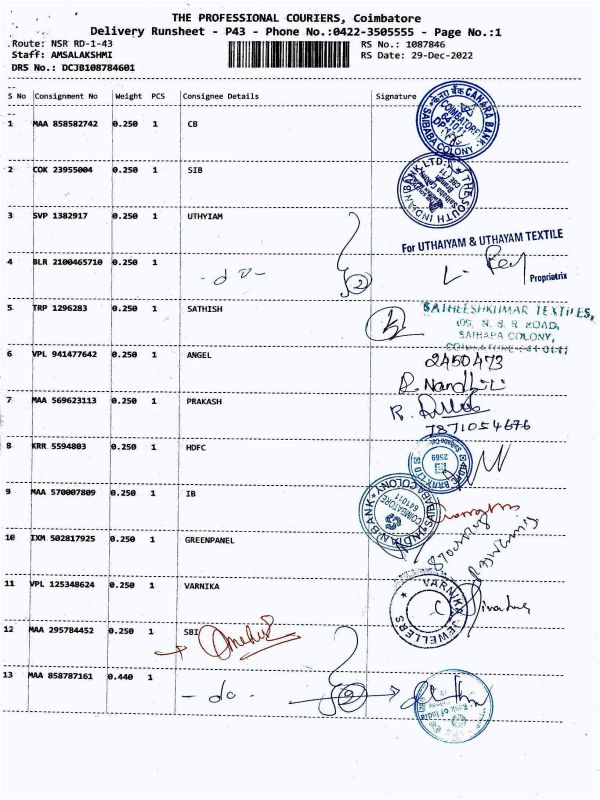 THE PROFESSIONAL COURIERS, Coimbatore
Delivery Runsheet - P43 - Phone No.:0422-3505555 - Page No.:1
Route: NSR RD-1-43 RS No.: 1087846
Staff: AMSALAKSHMI RS Date: 29-Dec-2022
DRS No.: DCJB108784601
S No Consignment No Weight PCS Consignee Details Signature
1 MAA 858582742 0.250 1 CB
CANARA BANK
COIMBATORE
641011
SAIBABA COLONY
2 COK 23955004 0.250 1 SIB
THE SOUTH INDIAN BANK LTD.
3 SVP 1382917 0.250 1 UTHYIAM
For UTHAIYAM & UTHAYAM TEXTILE
4 BLR 2100465710 0.250 1 - do - 2
Proprietrix
5 TRP 1296283 0.250 1 SATHISH
SATHEESHKUMAR TEXTILES,
N. S. R ROAD,
SAIBABA COLONY,
6 VPL 941477642 0.250 1 ANGEL
2450473
R. Nandhini
7 MAA 569623113 0.250 1 PRAKASH
R.
7871054676
8 KRR 5594803 0.250 1 HDFC
2569
9 MAA 570007809 0.250 1 IB
INDIAN BANK
SAIBABA COLONY
COIMBATORE
641011
10 IXM 502817925 0.250 1 GREENPANEL
11 VPL 125348624 0.250 1 VARNIKA
VARNIKA JEWELLERS
12 MAA 295784452 0.250 1 SBI
13 MAA 858787161 0.440 1 - do - 2
Bank of India